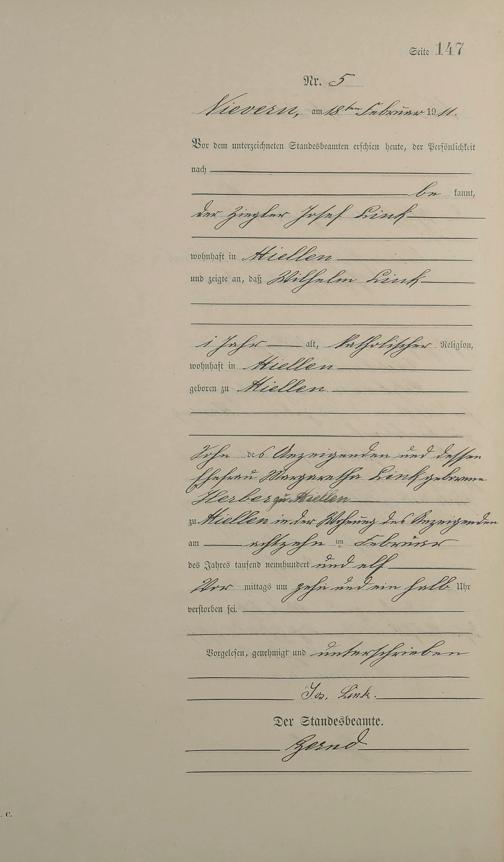 Seite 147
Nr. 5
Nievern, am 18ten Februar 1911.
Vor dem unterzeichneten Standesbeamten erschien heute, der Persönlichkeit
nach
be kannt,
der Ziegler Josef Link
wohnhaft in Miellen
und zeigte an, daß Wilhelm Link
1 Jahr alt, katholischer Religion,
wohnhaft in Miellen
geboren zu Miellen
Sohn des Anzeigenden und dessen
Ehefrau Margaretha Link geborene
Herber zu Miellen
zu Miellen in der Wohnung des Anzeigenden
am achtzehn im Februar
des Jahres tausend neunhundert und elf
Vor mittags um zehn und ein halb Uhr
verstorben sei.
Vorgelesen, genehmigt und unterschrieben
Jos. Link.
Der Standesbeamte.
C.